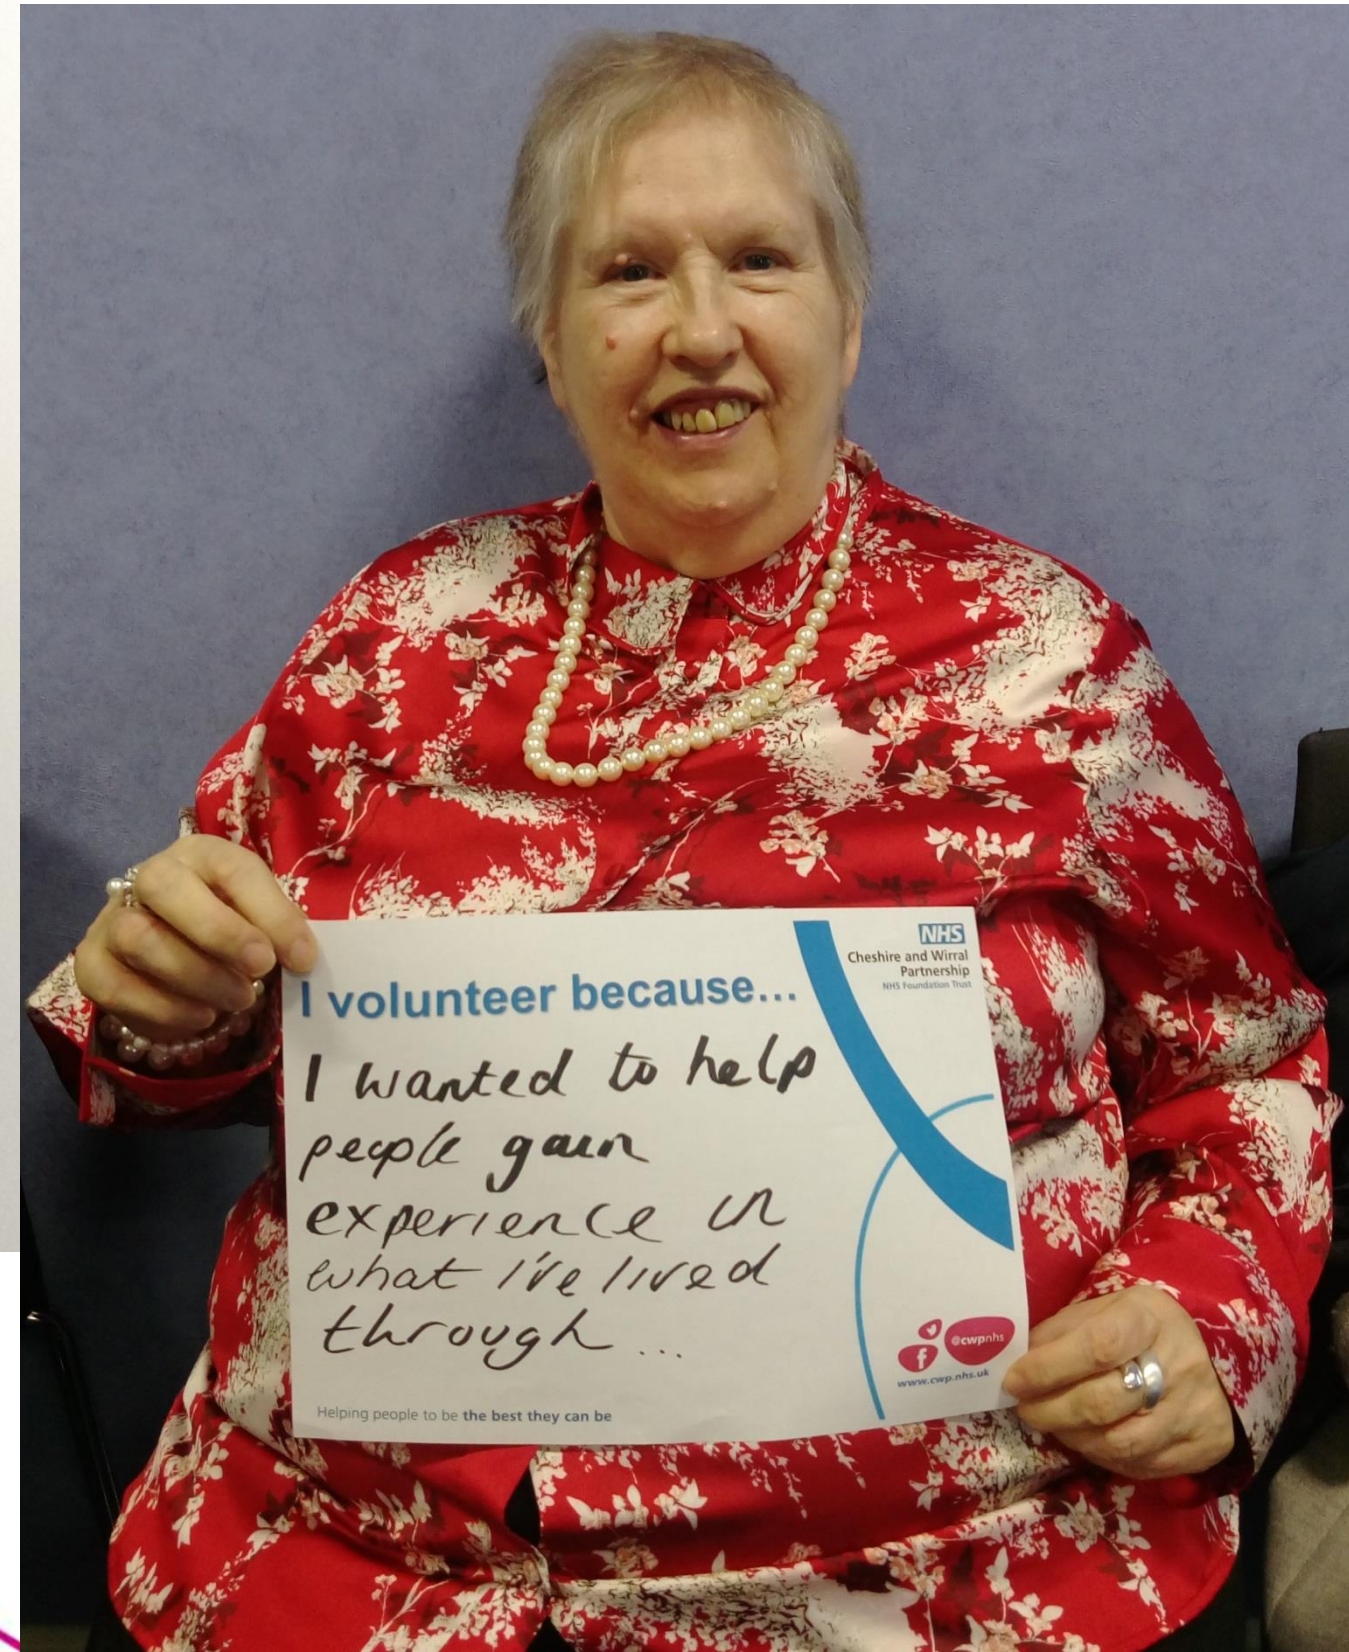 NHS
Cheshire and Wirral
Partnership
NHS Foundation Trust
I volunteer because...
I wanted to help
people gain
experience in
what I've lived
through ...
@cwpnhs
www.cwp.nhs.uk
Helping people to be the best they can be